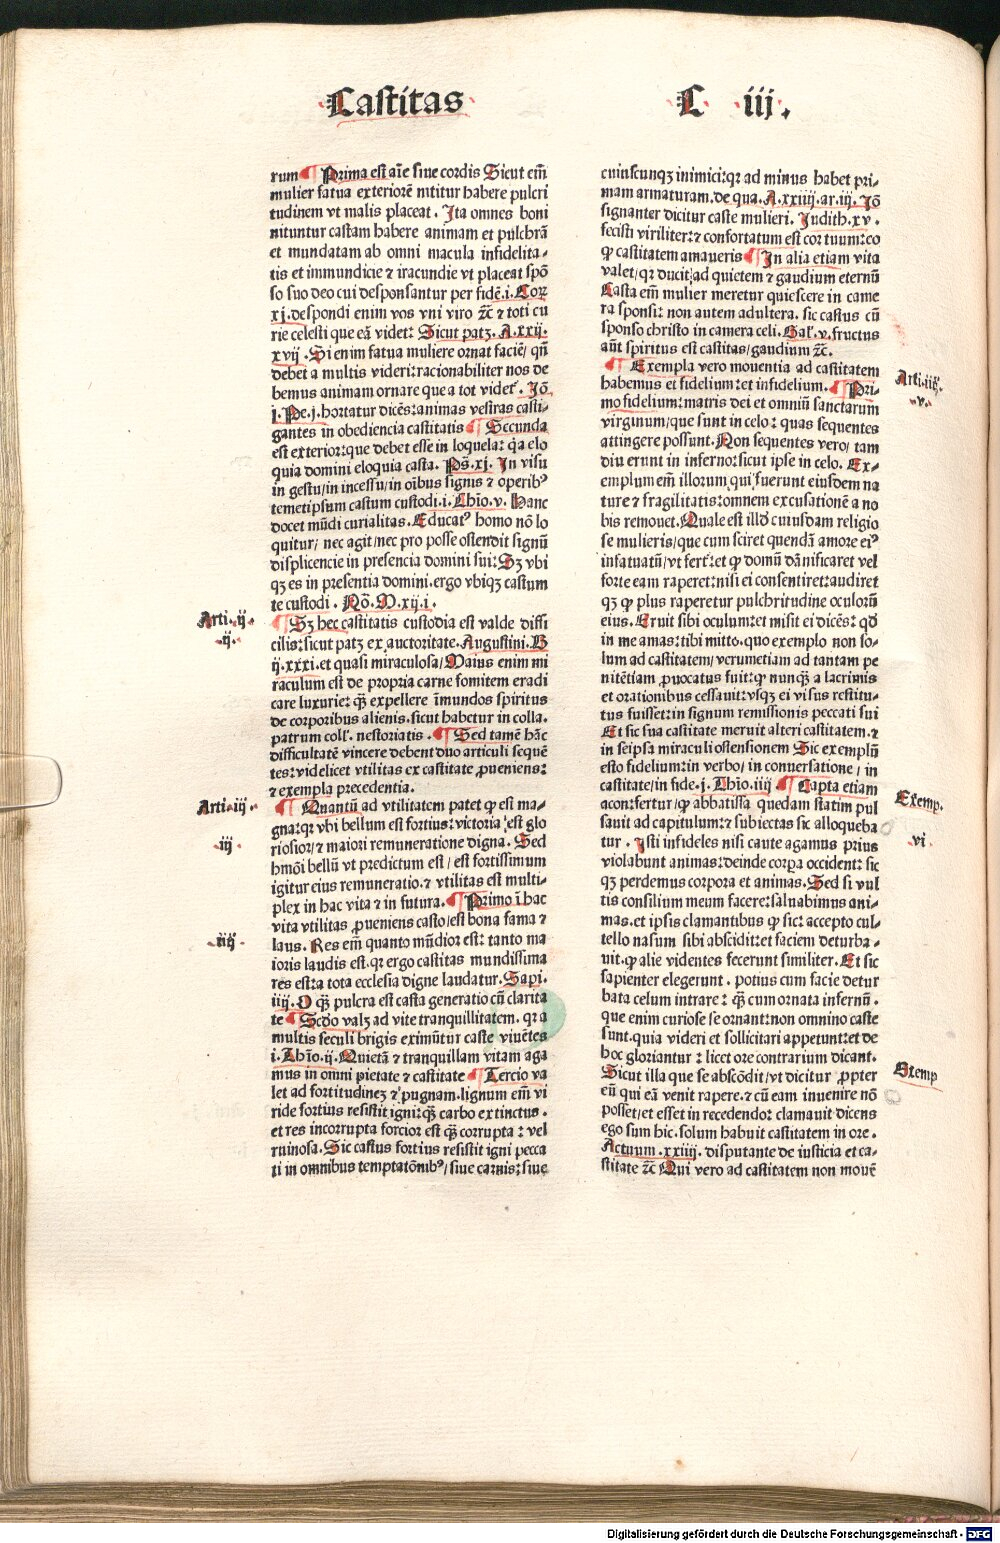 Castitas
C iij.
rum Prima est aīe siue cordis Sicut em̄
mulier fatua exteriorē nititur habere pulcri
tudinem vt malis placeat. Ita omnes boni
nituntur castam habere animam et pulchrā
et mundatam ab omni macula infidelita-
tis et immundicie ⁊ iracundie vt placeat spō
so suo deo cui desponsantur per fidē.i.Cor
xj.despondi enim vos vni viro ⁊c̄ ⁊ toti cu
rie celesti que eā videt: Sicut patꝫ.A.xxij.
xvij.Si enim fatua muliere ornat faciē/ qn̄
debet a multis videri:racionabiliter nos de
bemus animam ornare que a tot videt᷑. Iō
j.Pe.j.hortatur dicēs:animas vestras casti-
gantes in obediencia castitatis Secunda
est exterior:que debet esse in loquela: q̇a elo
quia domini eloquia casta. Ps̄.xj. In visu
in gestu/in incessu/in oībus signis ⁊ operibꝰ
temetipsum castum custodi.i.Thīo.v. Hanc
docet mūdi curialitas.Educatꝰ homo nō lo
quitur/ nec agit/nec pro posse ostendit signū
displicencie in presencia domini sui:Sꝫ vbi
qꝫ es in presentia domini.ergo vbiqꝫ castum
te custodi. Nō.M.xij.i.
Arti.ij.
ij.
Sꝫ hec castitatis custodia est valde diffi
cilis:sicut patꝫ ex auctoritate.Augustini.B
ij.xxxi.et quasi miraculosa/Maius enim mi
raculum est de propria carne fomitem eradi
care luxurie: q̄ꝫ expellere īmundos spiritus
de corporibus alienis.sicut habetur in colla.
patrum coll᷑. nestoriatis. Sed tamē hāc
difficultatē vincere debent duo articuli sequē
tes:videlicet vtilitas ex castitate ꝓueniens:
⁊ exempla precedentia.
Arti.iij.
Quantū ad vtilitatem patet ꝙ est ma-
gna:qꝛ vbi bellum est fortius:victoria est glo
iij
riosior/⁊ maiori remuneratione digna. Sed
hmōi bellū vt predictum est/ est fortissimum
igitur eius remuneratio.⁊ vtilitas est multi-
plex in hac vita ⁊ in futura. Primo ī hac
vita vtilitas ꝓueniens casto/est bona fama ⁊
iiij
laus. Res em̄ quanto mūdior est: tanto ma
ioris laudis est.qꝛ ergo castitas mundissima
res est:a tota ecclesia digne laudatur.Sapi.
iiij.O q̄ꝫ pulcra est casta generatio cū clarita
te Scd̄o valꝫ ad vite tranquillitatem. qꝛ a
multis seculi brigis eximūtur caste viuētes
i.Thīo.ij.Quietā ⁊ tranquillam vitam aga
mus in omni pietate ⁊ castitate Tercio va
let ad fortitudinez ⁊ pugnam.lignum em̄ vi
ride fortius resistit igni:q̄ꝫ carbo extinctus.
et res incorrupta forcior est q̄ꝫ corrupta : vel
ruinosa.Sic castus fortius resistit igni pecca
ti in omnibus temptatōnibꝰ/siue carnis:siue
cuiuscunqꝫ inimici:qꝛ ad minus habet pri-
mam armaturam.de qua. A.xxiiij.ar.iij. Iō
signanter dicitur caste mulieri. Judith.xv.
fecisti viriliter:⁊ confortatum est cor tuum:eo
ꝙ castitatem amaueris In alia etiam vita
valet/qꝛ ducit ad quietem ⁊ gaudium eternū
Casta em̄ mulier meretur quiescere in came
ra sponsi: non autem adultera. sic castus cū
sponso christo in camera celi. Gal᷑.v.fructus
aūt spiritus est castitas/gaudium ⁊c̄.
Arti.iiij.
v.
Exempla vero mouentia ad castitatem
habemus et fidelium:et infidelium. Pri-
mo fidelium:matris dei et omniū sanctarum
virginum/que sunt in celo: quas sequentes
attingere possunt.Non sequentes vero/ tam
diu erunt in inferno:sicut ipse in celo. Ex-
emplum em̄ illorum qui fuerunt eiusdem na
ture ⁊ fragilitatis:omnem excusationē a no
bis remouet.Quale est illd̓ cuiusdam religio
se mulieris/que cum sciret quendā amore eiꝰ
infatuatū/vt fert᷑:et ꝙ domū dānificaret vel
forte eam raperet:nisi ei consentiret:audiret
qꝫ ꝙ plus raperetur pulchritudine oculorū
eius. Eruit sibi oculum:et misit ei dicēs: qd̓
in me amas:tibi mitto.quo exemplo non so-
lum ad castitatem/verumetiam ad tantam pe
nitētiam ꝓuocatus fuit:ꝙ nunqꝫ̄ a lacrimis
et orationibus cessauit:vsqꝫ ei visus restitu-
tus fuisset:in signum remissionis peccati sui
Et sic sua castitate meruit alteri castitatem.⁊
in seipsa miraculi ostensionem Sic exemplū
esto fidelium:in verbo/ in conuersatione/ in
castitate/in fide.j.Thīo.iiij Capta etiam
Exemp.
acon:fertur/ꝙ abbatissa quedam statim pul
sauit ad capitulum:⁊ subiectas sic alloqueba
vi
tur. Isti infideles nisi caute agamus prius
violabunt animas:deinde corpa occident: sic
qꝫ perdemus corpora et animas.Sed si vul
tis consilium meum facere:saluabimus ani-
mas.et ipsis clamantibus ꝙ sic: accepto cul-
tello nasum sibi abscidit:et faciem deturba-
uit.ꝙ alie videntes fecerunt similiter. Et sic
sapienter elegerunt. potius cum facie detur
bata celum intrare: q̄ꝫ cum ornata infernū.
que enim curiose se ornant:non omnino caste
sunt.quia videri et sollicitari appetunt:et de
hoc gloriantur: licet ore contrarium dicant.
Exemp
Sicut illa que se abscōdit/vt dicitur ꝓpter
eū qui eā venit rapere.⁊ cū eam inuenire nō
posset/et esset in recedendo: clamauit dicens
ego sum hic.solum habuit castitatem in ore.
Actuum.xxiiij. disputante de iusticia et ca-
stitate ⁊c̄ Qui vero ad castitatem non mouē
Digitalisierung gefördert durch die Deutsche Forschungsgemeinschaft - DFG